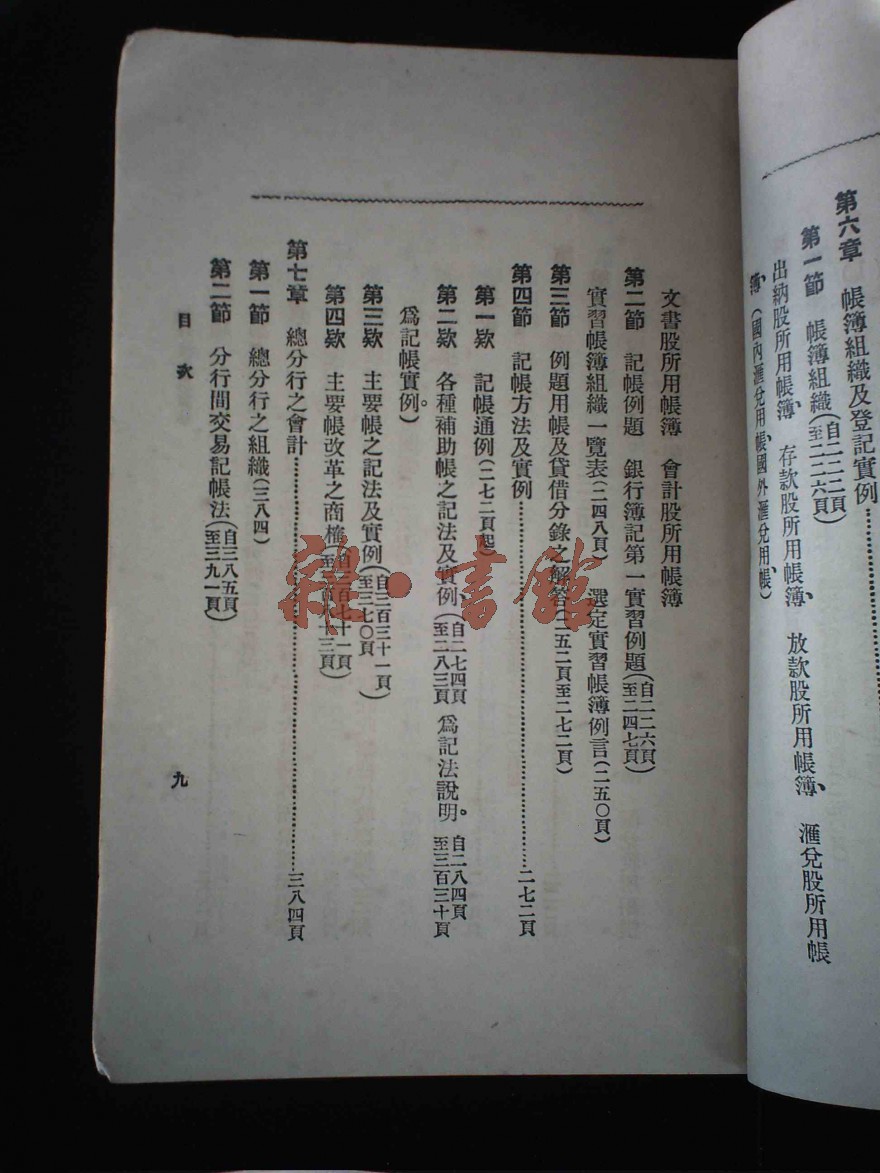 第六章　帳簿組織及登記實例
第一節　帳簿組織(自二二二頁至二二六頁)
出納股所用帳簿、　存款股所用帳簿、　放款股所用帳簿、　滙兌股所用帳
簿、(國內滙兌用帳、國外滙兌用帳)
文書股所用帳簿　會計股所用帳簿
第二節　記帳例題　銀行簿記第一實習例題(自二二六頁至二四七頁)
實習帳簿組織一覽表(二四八頁)　選定實習帳簿例言(二五〇頁)
第三節　例題用帳及貸借分錄之解答(二五二頁至二七二頁)
第四節　記帳方法及實例……二七二頁
第一欵　記帳通例(二七二頁起)
第二欵　各種補助帳之記法及實例(自二七四頁至二八三頁爲記法說明。自二八四頁至三百三十頁
爲記帳實例。)
第三欵　主要帳之記法及實例(自三百三十一頁至三七〇頁)
第四欵　主要帳改革之商榷(自三百七十一頁
第七章　總分行之會計……三八四頁
第一節　總分行之組織(三八四)
第二節　分行間交易記帳法(自三八五頁至三九一頁)
目　次
九
雜·書館